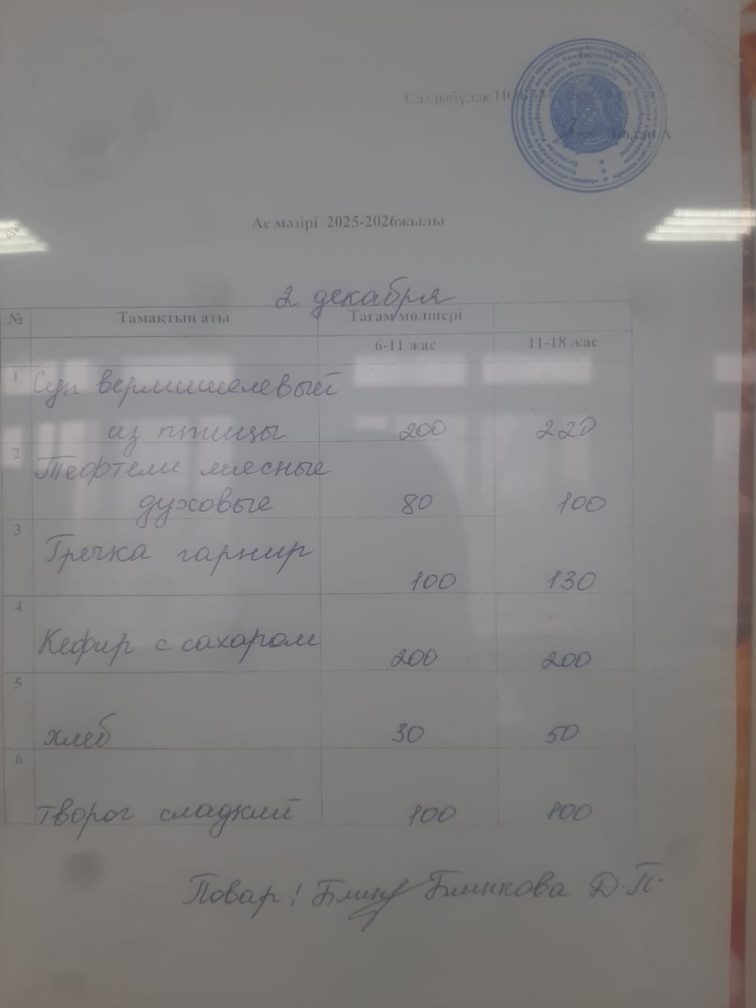 Ас мәзірі 2025-2026жылы
2 декабря
№ Тамақтың аты Тағам мөлшері
6-11 жас 11-18 жас
1 Суп вермишелевый
из птицы 200 220
2 Тефтели мясные
духовые 80 100
3 Гречка гарнир
100 130
4
Кефир с сахаром 200 200
5
хлеб 30 50
6
творог сладкий 100 100
Повар! Блинкова Д.П.